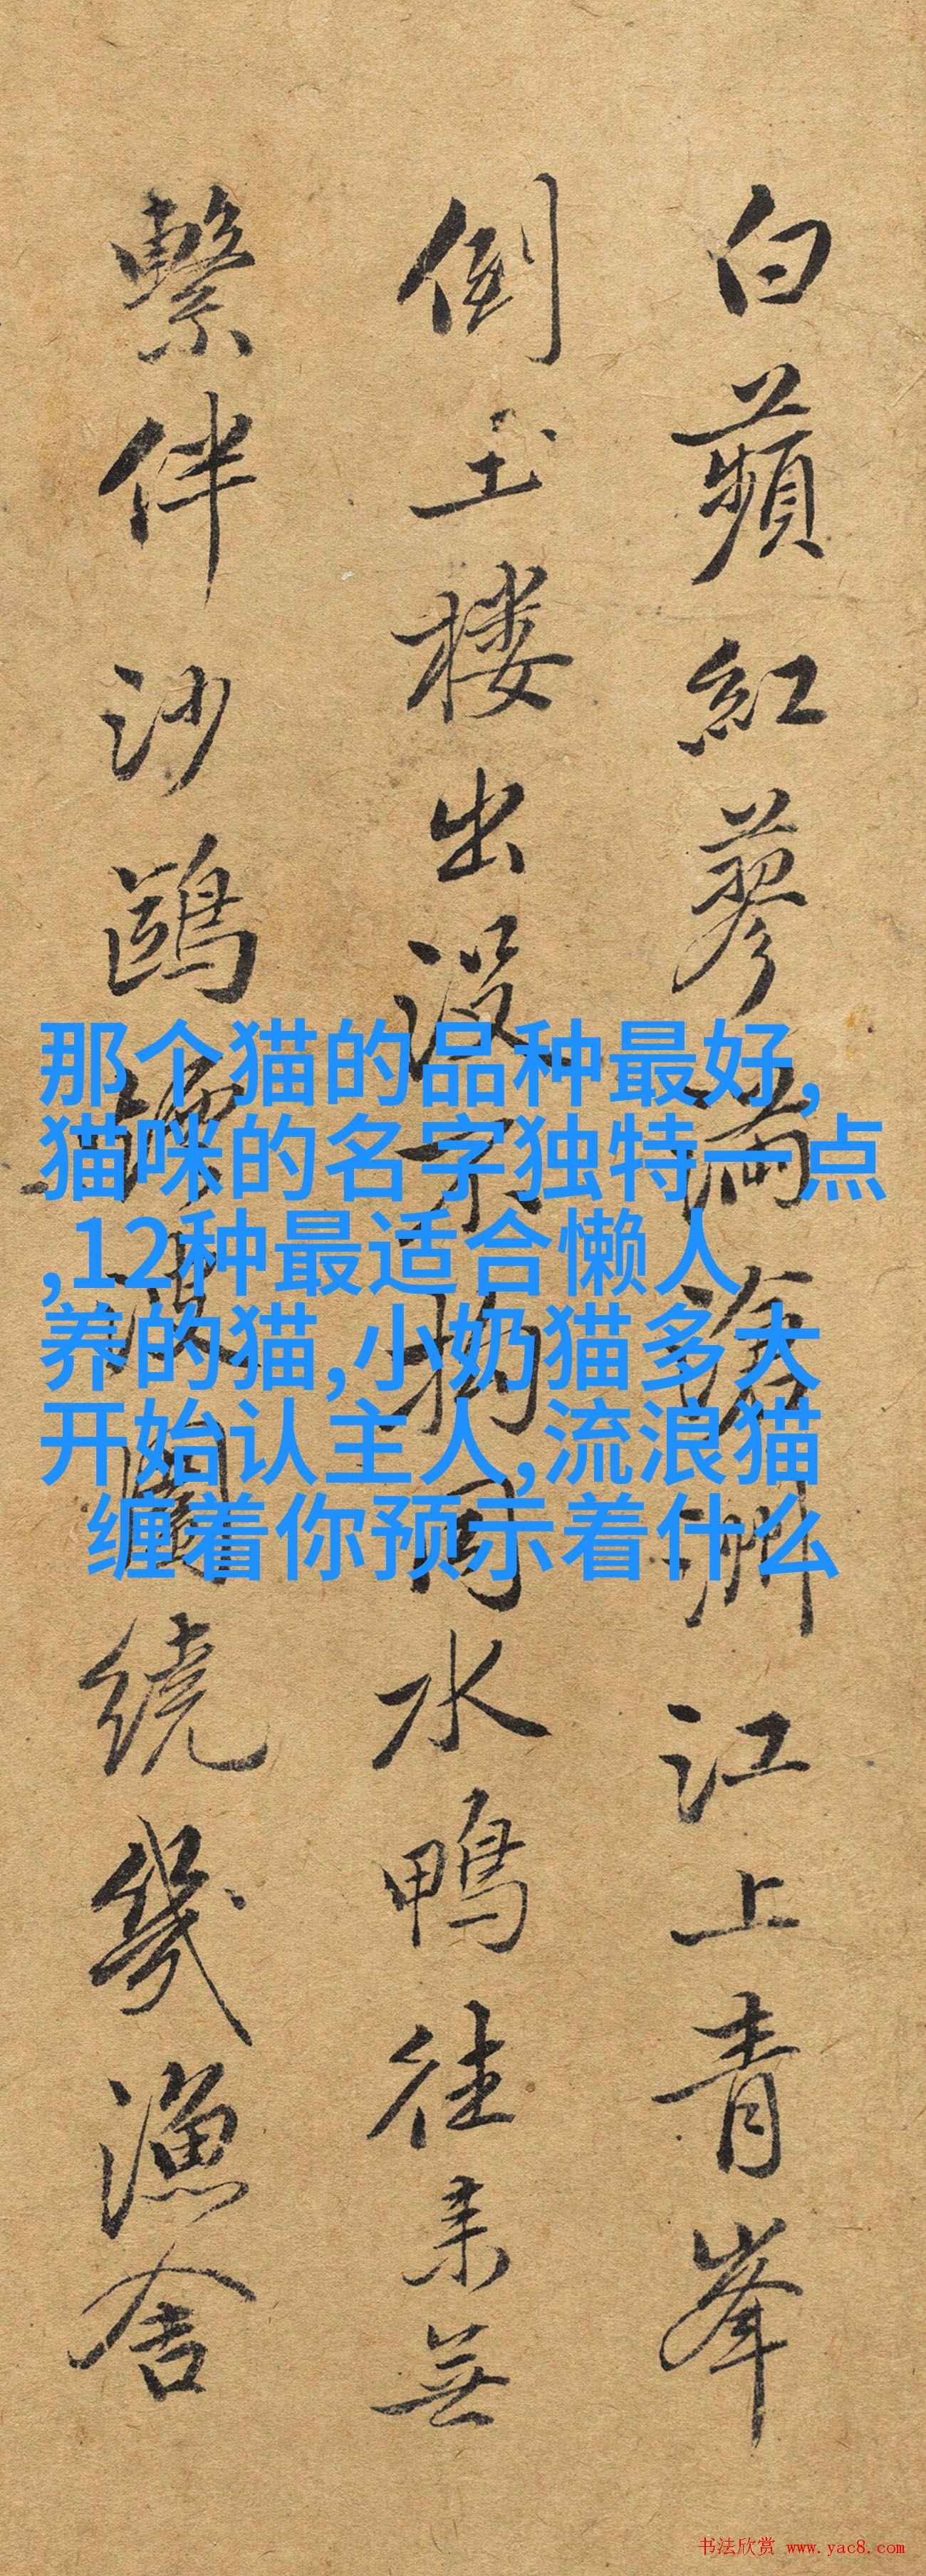 白蘋紅蓼滿滄洲江上青峯
倒玉楼出没不拘同水鴨往来無
繫伴沙鷗波圍繞幾漁舍
那个猫的品种最好,
猫咪的名字独特一点
,12种最适合懒人
养的猫,小奶猫多大
开始认主人,流浪猫
缠着你预示着什么
书法欣赏 www.yac8.com